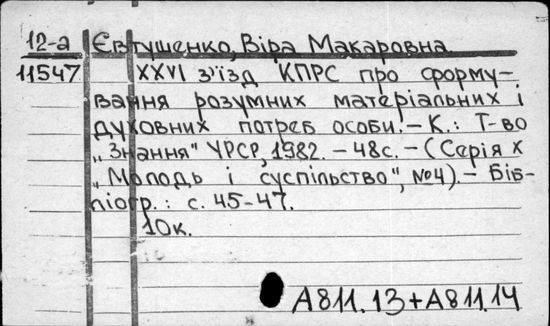 12-а Євтушенко, Віра Макаровна
11547 XXVI з'їзд КПРС про форму-
вання розумних матеріальних і
духовних потреб особи. – К.: Т-во
„Знання" УРСР, 1982. – 48с. – (Серія X
„Молодь і суспільство", №4). – Біб-
ліогр.: с. 45-47.
10к.
А811.13+А811.14